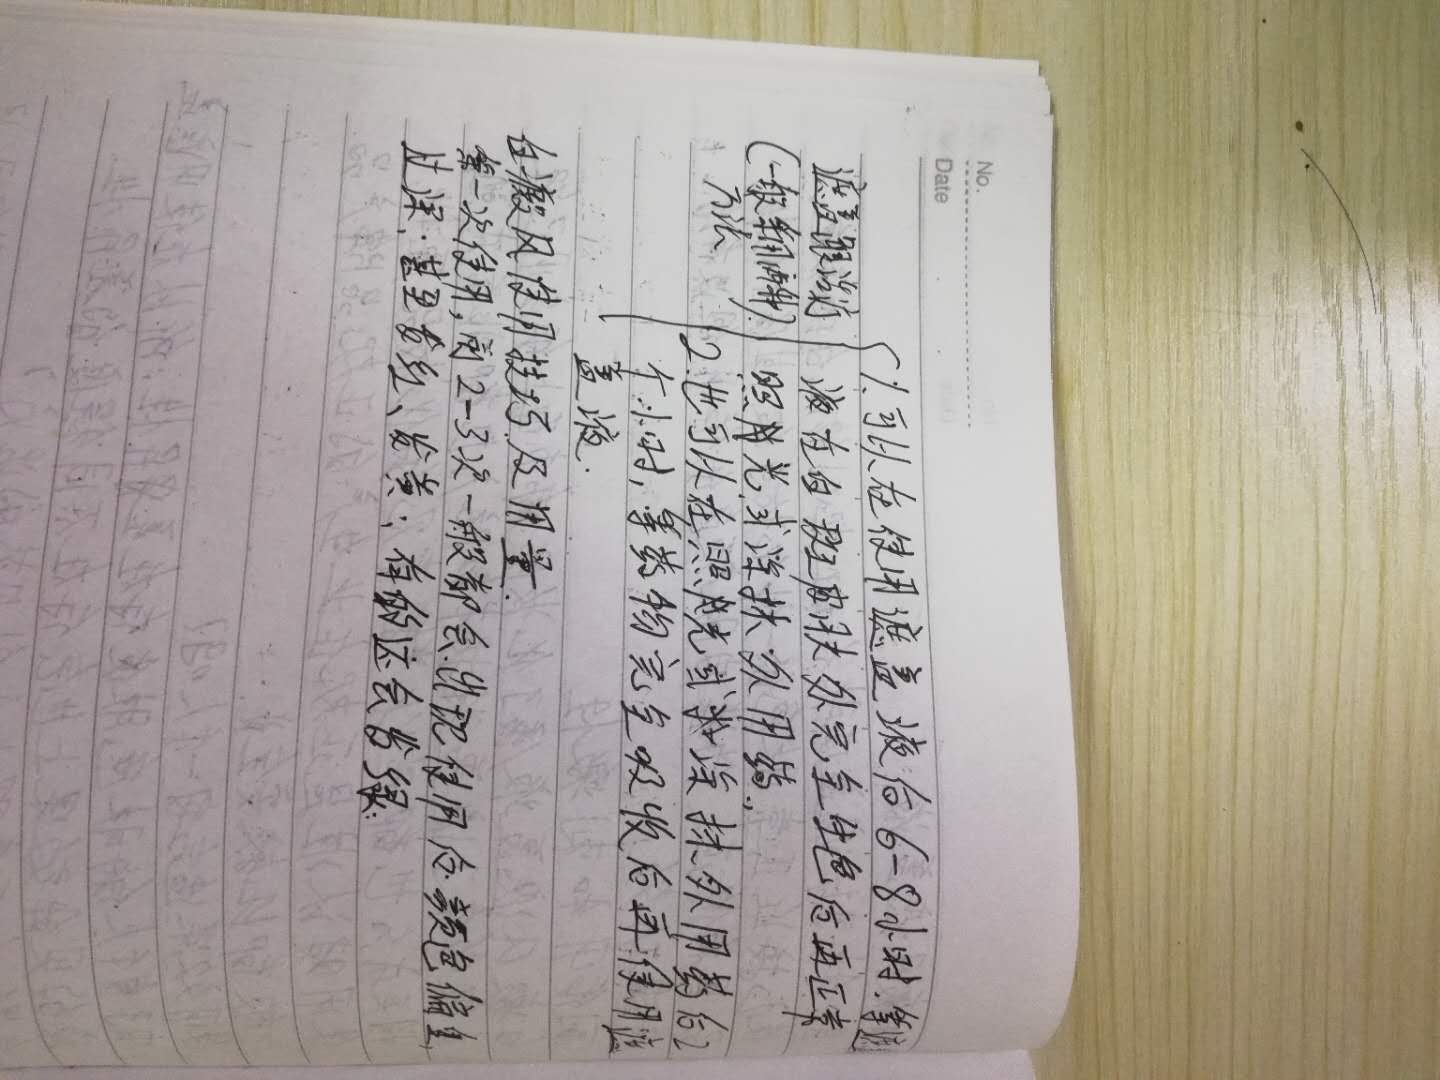 No.
Date
1. 可以在使用遮盖液后6-8小时. 等遮
遮盖跟治疗 液在白斑皮肤处完全上色后再正常
(一般采用两种) 照光或涂抹外用药.
方法 2. 也可以在照光或者涂抹外用药后2
个小时, 等药物完全吸收后再使用遮
盖液.
白癜风使用技巧及用量.
第一次使用, 前2-3次一般都会出现使用后颜色偏重
过深. 甚至发红、发黄; 有的还会发绿.